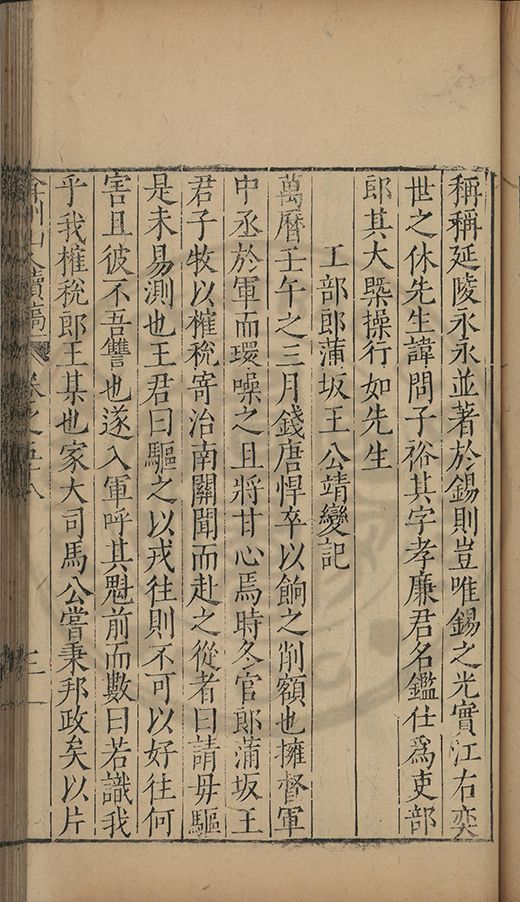 稱稱延陵永永並著於錫則豈唯錫之光實江右奕
世之休先生諱問子裕其字孝廉君名鑑仕爲吏部
郎其大槩操行如先生
工部郎蒲坂王公靖變記
萬曆壬午之三月錢唐悍卒以餉之削額也擁督軍
中丞於軍而環噪之且將甘心焉時冬官郎蒲坂王
君子牧以榷稅寄治南關聞而赴之從者曰請毋驅
是未易測也王君曰驅之以戎往則不可以好往何
害且彼不吾讐也遂入軍呼其魁前而數曰若識我
乎我榷稅郎王某也家大司馬公嘗秉邦政矣以片
弇州山人續稿 卷之五十八 三